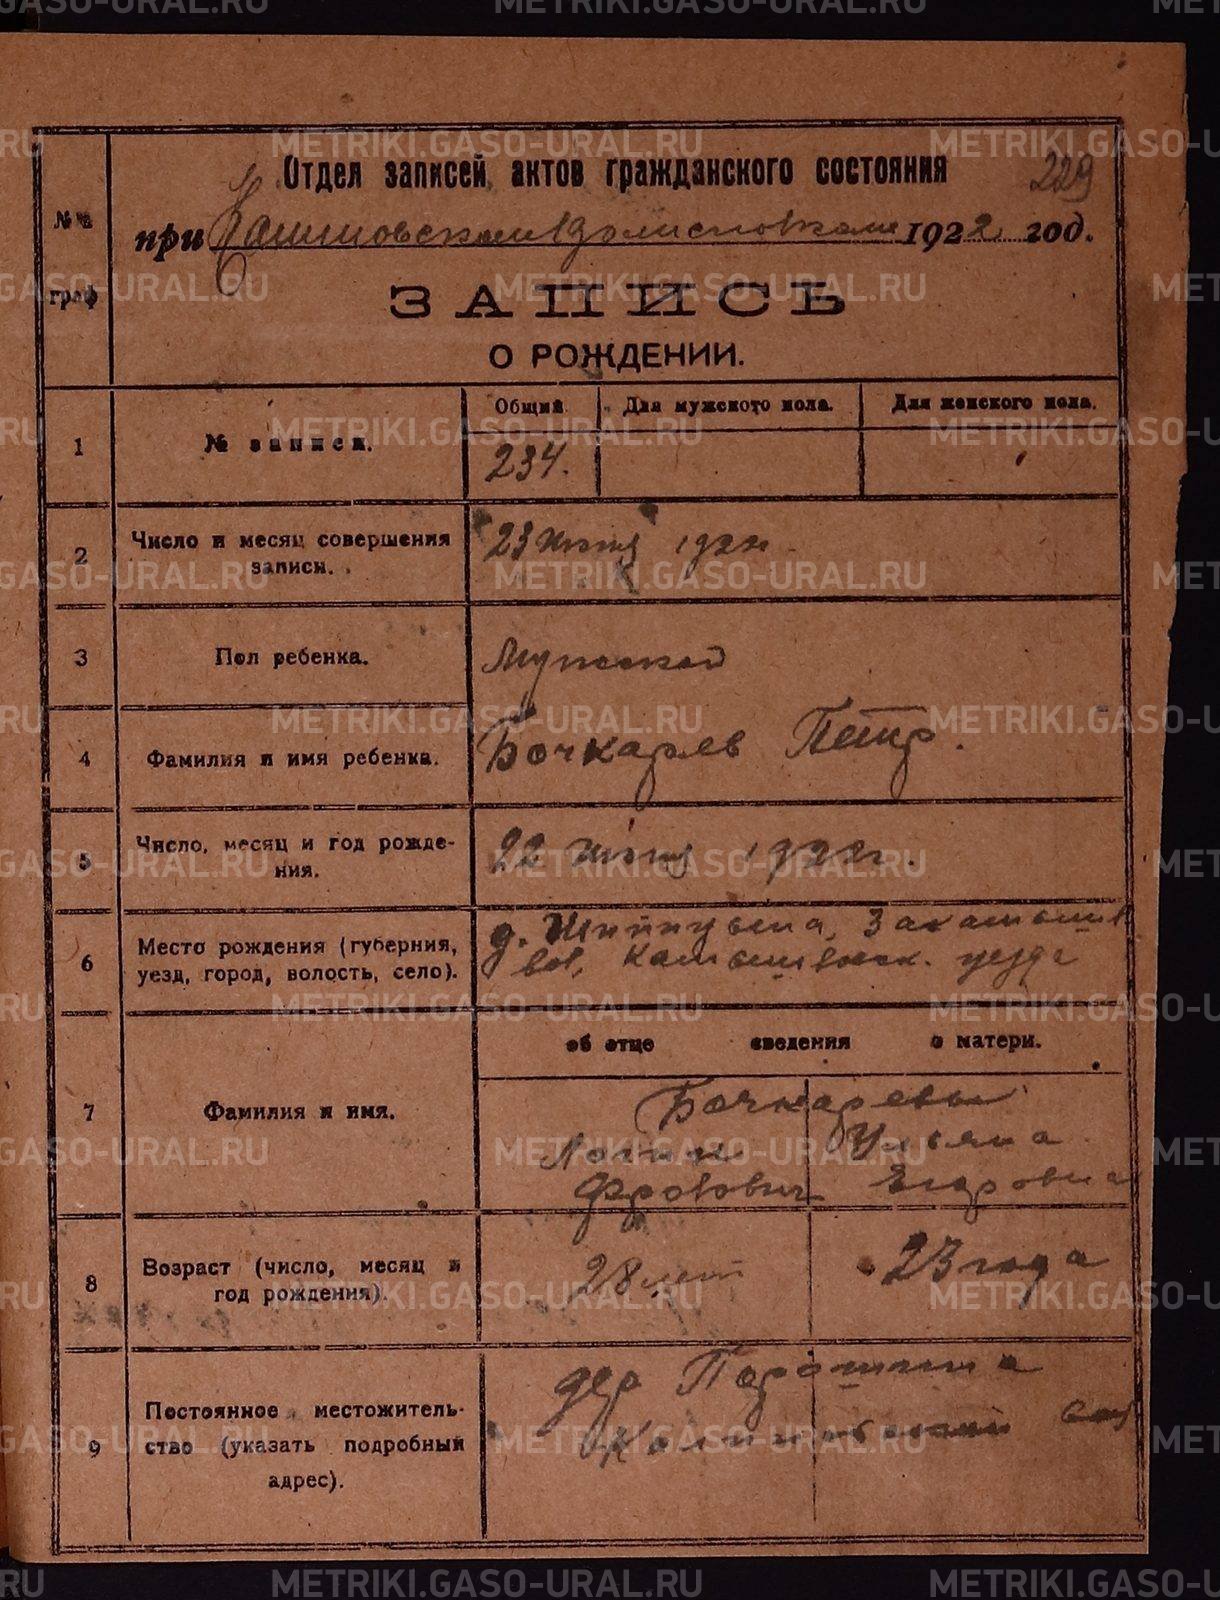 METRIKI.GASO-URAL.RU
Отдел записей актов гражданского состояния
229
№№ граф
при волисполкоме 1922 год.
ЗАПИСЬ
О РОЖДЕНИИ.
Общий Для мужского пола. Для женского пола.
1 № записи. 234.
2 Число и месяц совершения записи. 23 июня 1922 г.
3 Пол ребенка. Мужской
4 Фамилия и имя ребенка. Бочкарев Петр.
5 Число, месяц и год рожде-
ния. 22 июня 1922 г.
6 Место рождения (губерния,
уезд, город, волость, село). д.
вол, Камышловск. уезда
об отце сведения о матери.
7 Фамилия и имя. Бочкаревы
Логин Ульяна
Фролович Егоровна
8 Возраст (число, месяц и
год рождения). 28 лет 23 года
9 Постоянное местожитель-
ство (указать подробный
адрес). дер Паршина